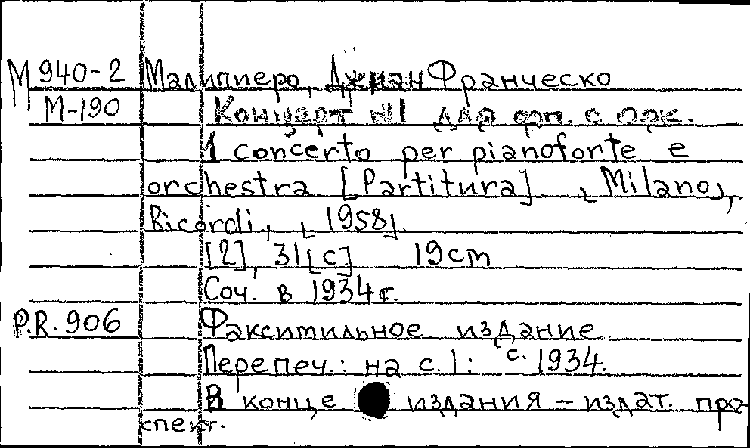 М 940-2 Малипиеро, Джан Франческо
М-190 Концерт №1 для фп. с орк.
1 concerto per pianoforte e
orchestra [Partitura] [Milano],
Ricordi, [1958]
[2], 31[с] 19cm
Соч. в 1934 г.
P.R. 906 Факсимильное издание
Перепеч.: на с. 1: с. 1934.
В конце издания – издат. про-
спект.